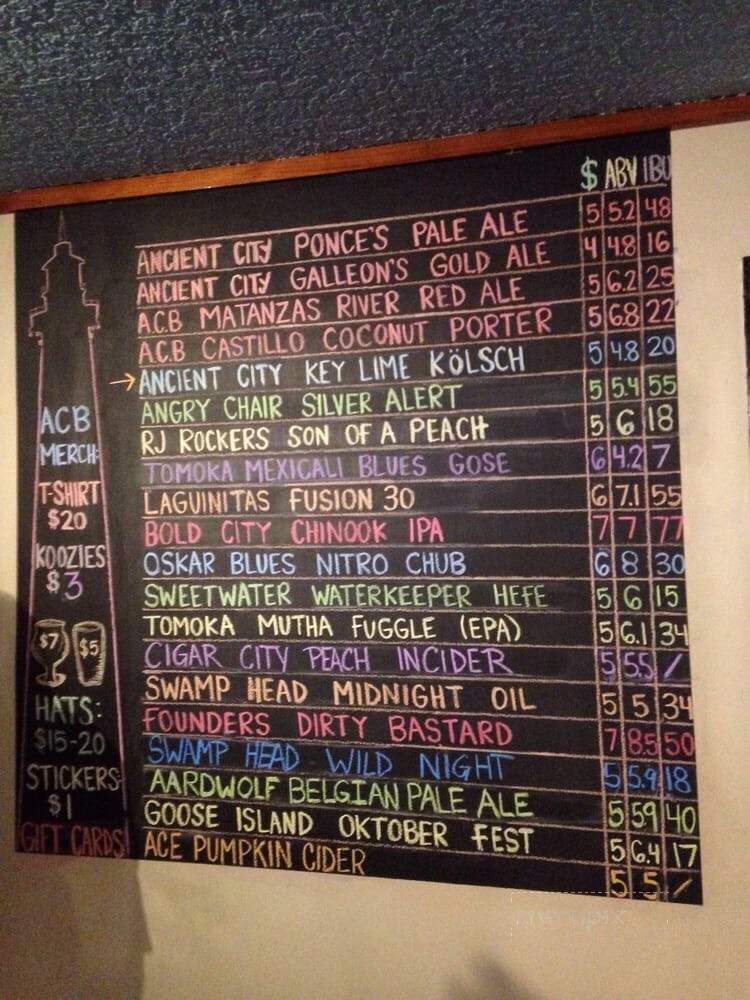 $ ABV IBU
ANCIENT CITY PONCE'S PALE ALE 5 5.2 48
ANCIENT CITY GALLEON'S GOLD ALE 4 4.8 16
A.C.B MATANZAS RIVER RED ALE 5 6.2 25
A.C.B CASTILLO COCONUT PORTER 5 6.8 22
→ ANCIENT CITY KEY LIME KÖLSCH 5 4.8 20
ANGRY CHAIR SILVER ALERT 5 5.4 55
RJ ROCKERS SON OF A PEACH 5 6 18
TOMOKA MEXICALI BLUES GOSE 6 4.2 7
LAGUINITAS FUSION 30 6 7.1 55
BOLD CITY CHINOOK IPA 7 7 77
OSKAR BLUES NITRO CHUB 6 8 30
SWEETWATER WATERKEEPER HEFE 5 6 15
TOMOKA MUTHA FUGGLE (EPA) 5 6.1 34
CIGAR CITY PEACH INCIDER 5 5.5 /
SWAMP HEAD MIDNIGHT OIL 5 5 34
FOUNDERS DIRTY BASTARD 7 8.5 50
SWAMP HEAD WILD NIGHT 5 5.9 18
AARDWOLF BELGIAN PALE ALE 5 59 40
GOOSE ISLAND OKTOBER FEST 5 6.4 17
ACE PUMPKIN CIDER 5 5 /
ACB
MERCH:
T-SHIRT
$20
KOOZIES
$3
$7 $5
HATS:
$15-20
STICKERS:
$1
GIFT CARDS